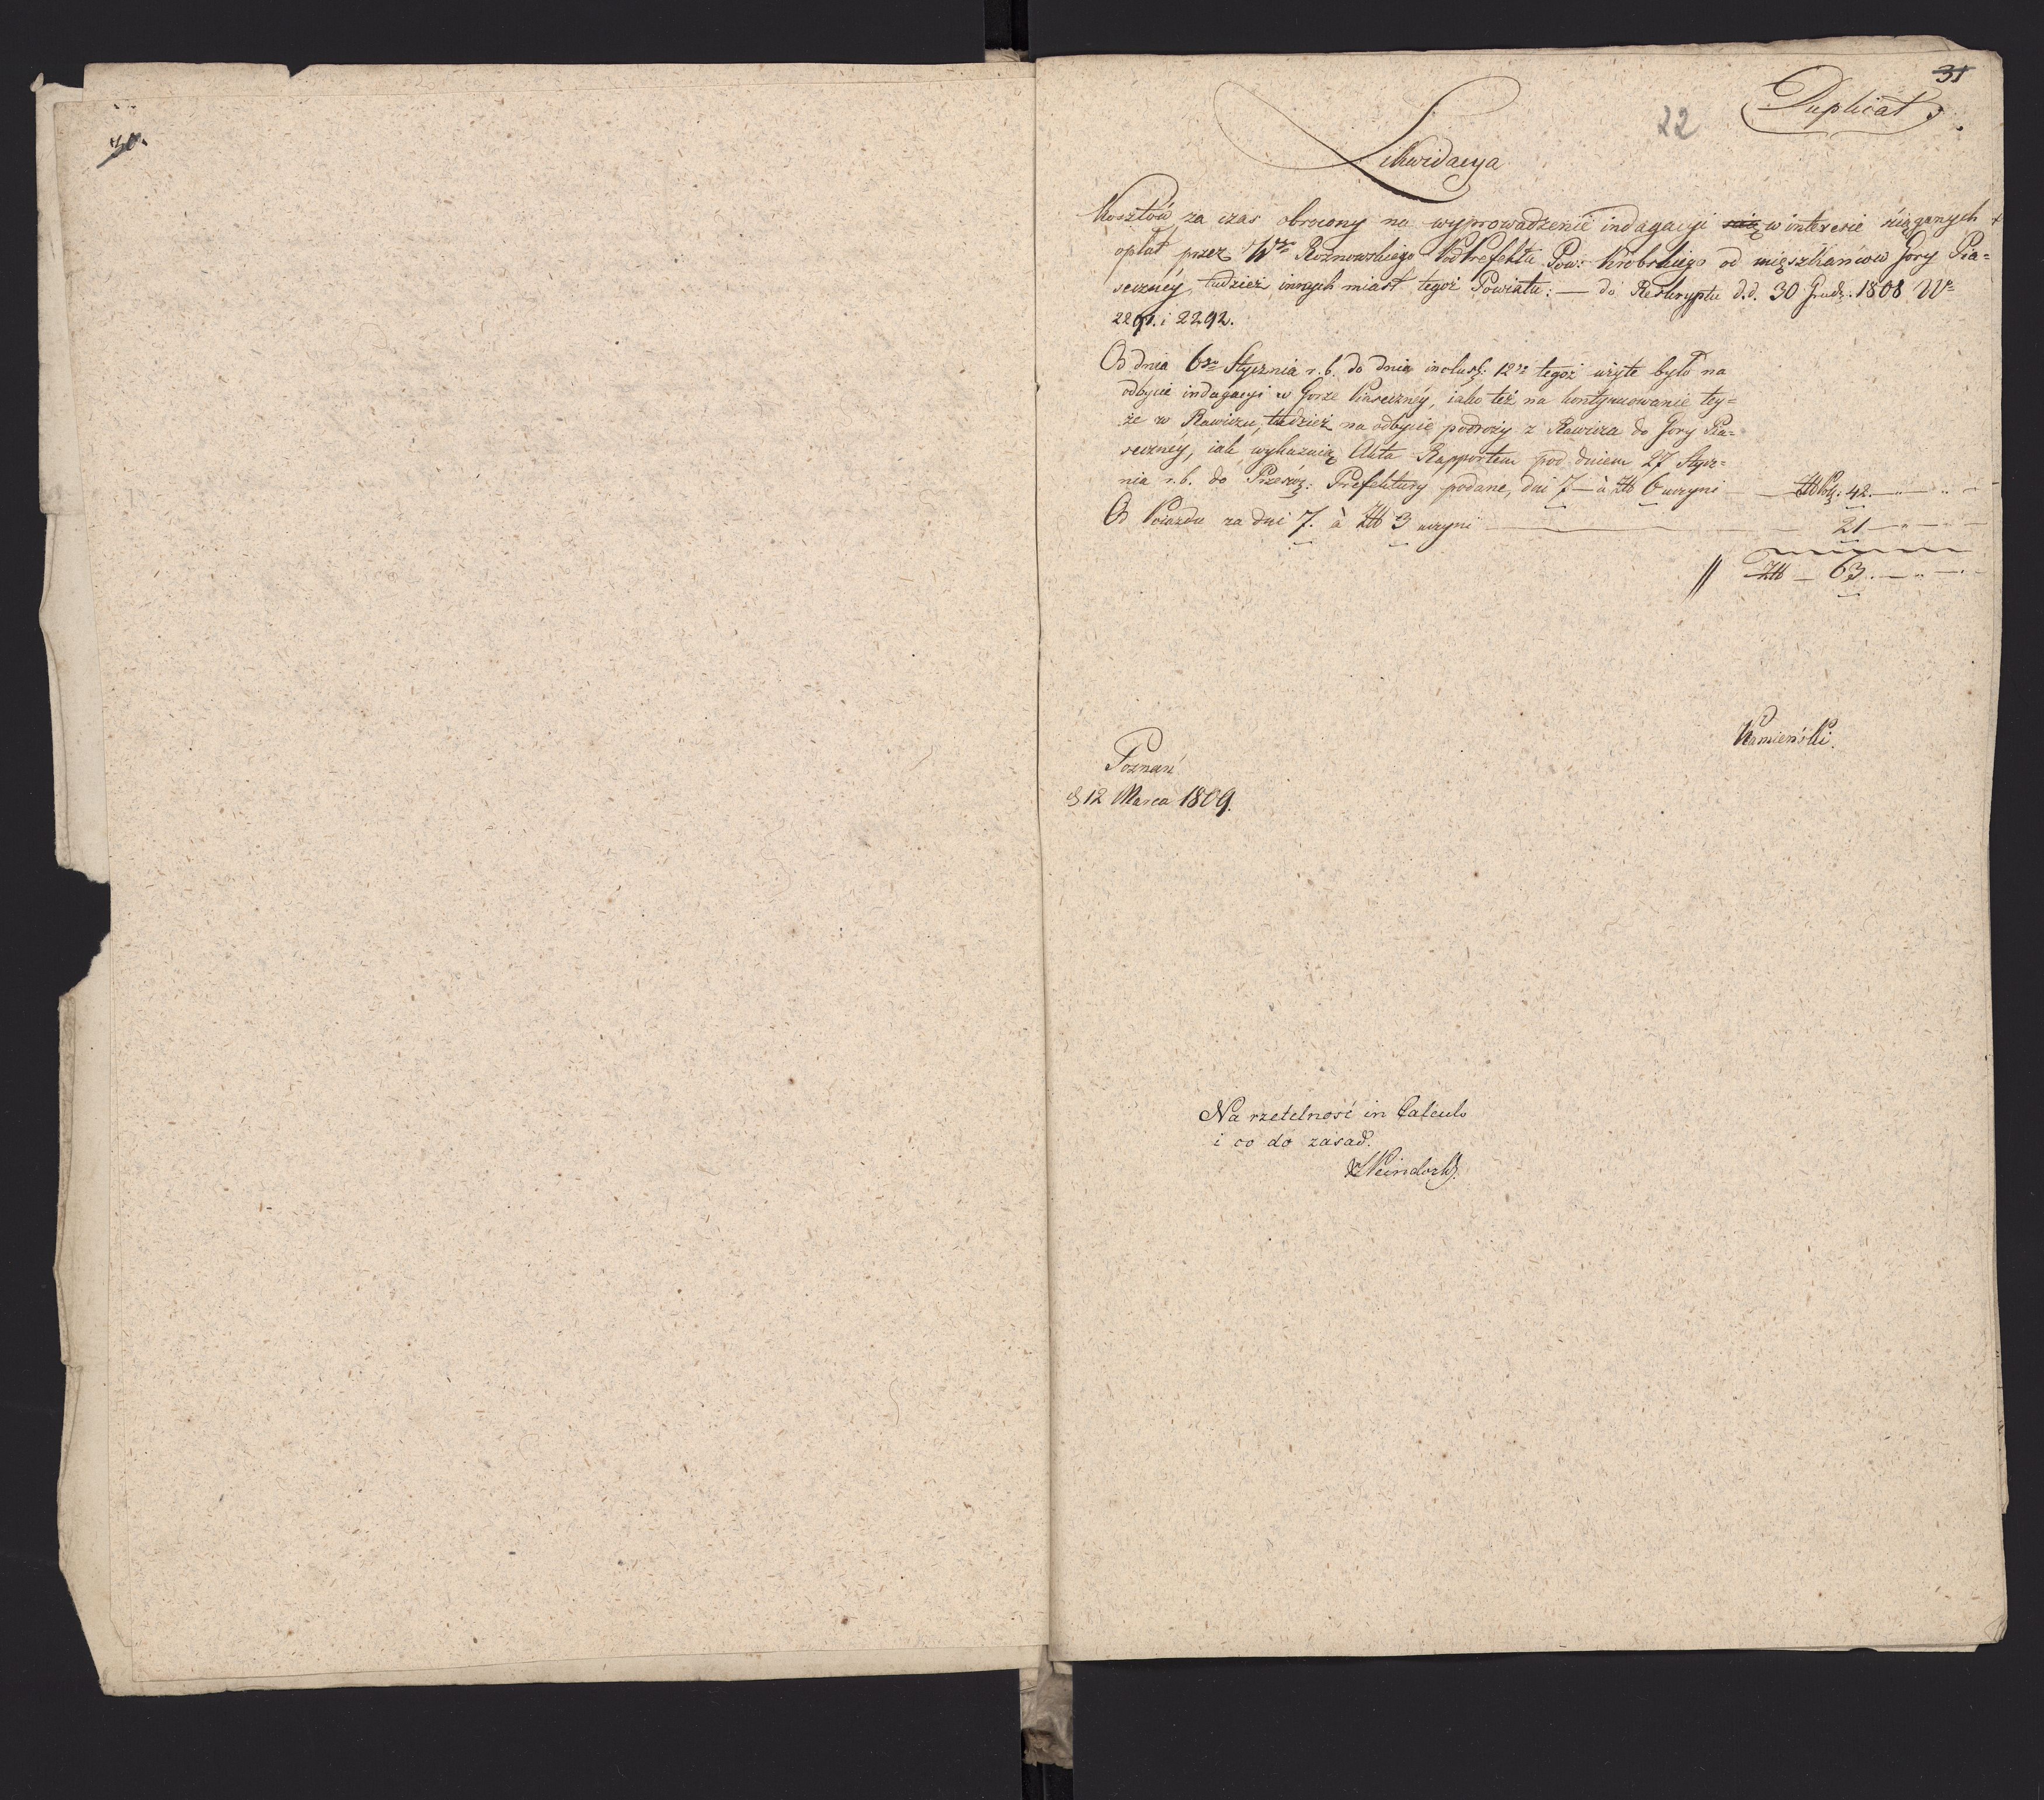 30.
31
22
Duplicat
Likwidacya
Kosztów za czas obrocony na wyprowadzenie indagacyi w interesie siąganych
opłat przez Wgo Roznowskiego PodPrefekta Pow: Krobskiego od mięszkańcow Gory Pia=
seczney, tudzież innych miast tegoż Powiatu: — do Reskryptu d.d. 30 Grudz. 1808 Nr
2291. i 2292.
Od dnia 6go Stycznia r. b. do dnia inclus: 12go tegoż użyte było na
odbycie indagacyi w Gorze Piaseczney, iako też na kontynuowanie tey=
że w Rawiczu, tudzież na odbycie podroży z Rawicza do Gory Pia=
seczney, iak wykazuią Akta Rapportem pod dniem 27 Stycz=
nia r. b. do Prześwę: Prefektury podane, dni 7 — à Zł 6 uczyni — Zł Pol: 42. — „ —
Od Poiazdu za dni 7. à Zł 3 uczyni — 21 — „ —
Zł — 63. — „ —
Kamieński.
Poznań
d 12 Marca 1809.
Na rzetelność in Calculo
i co do zasad.